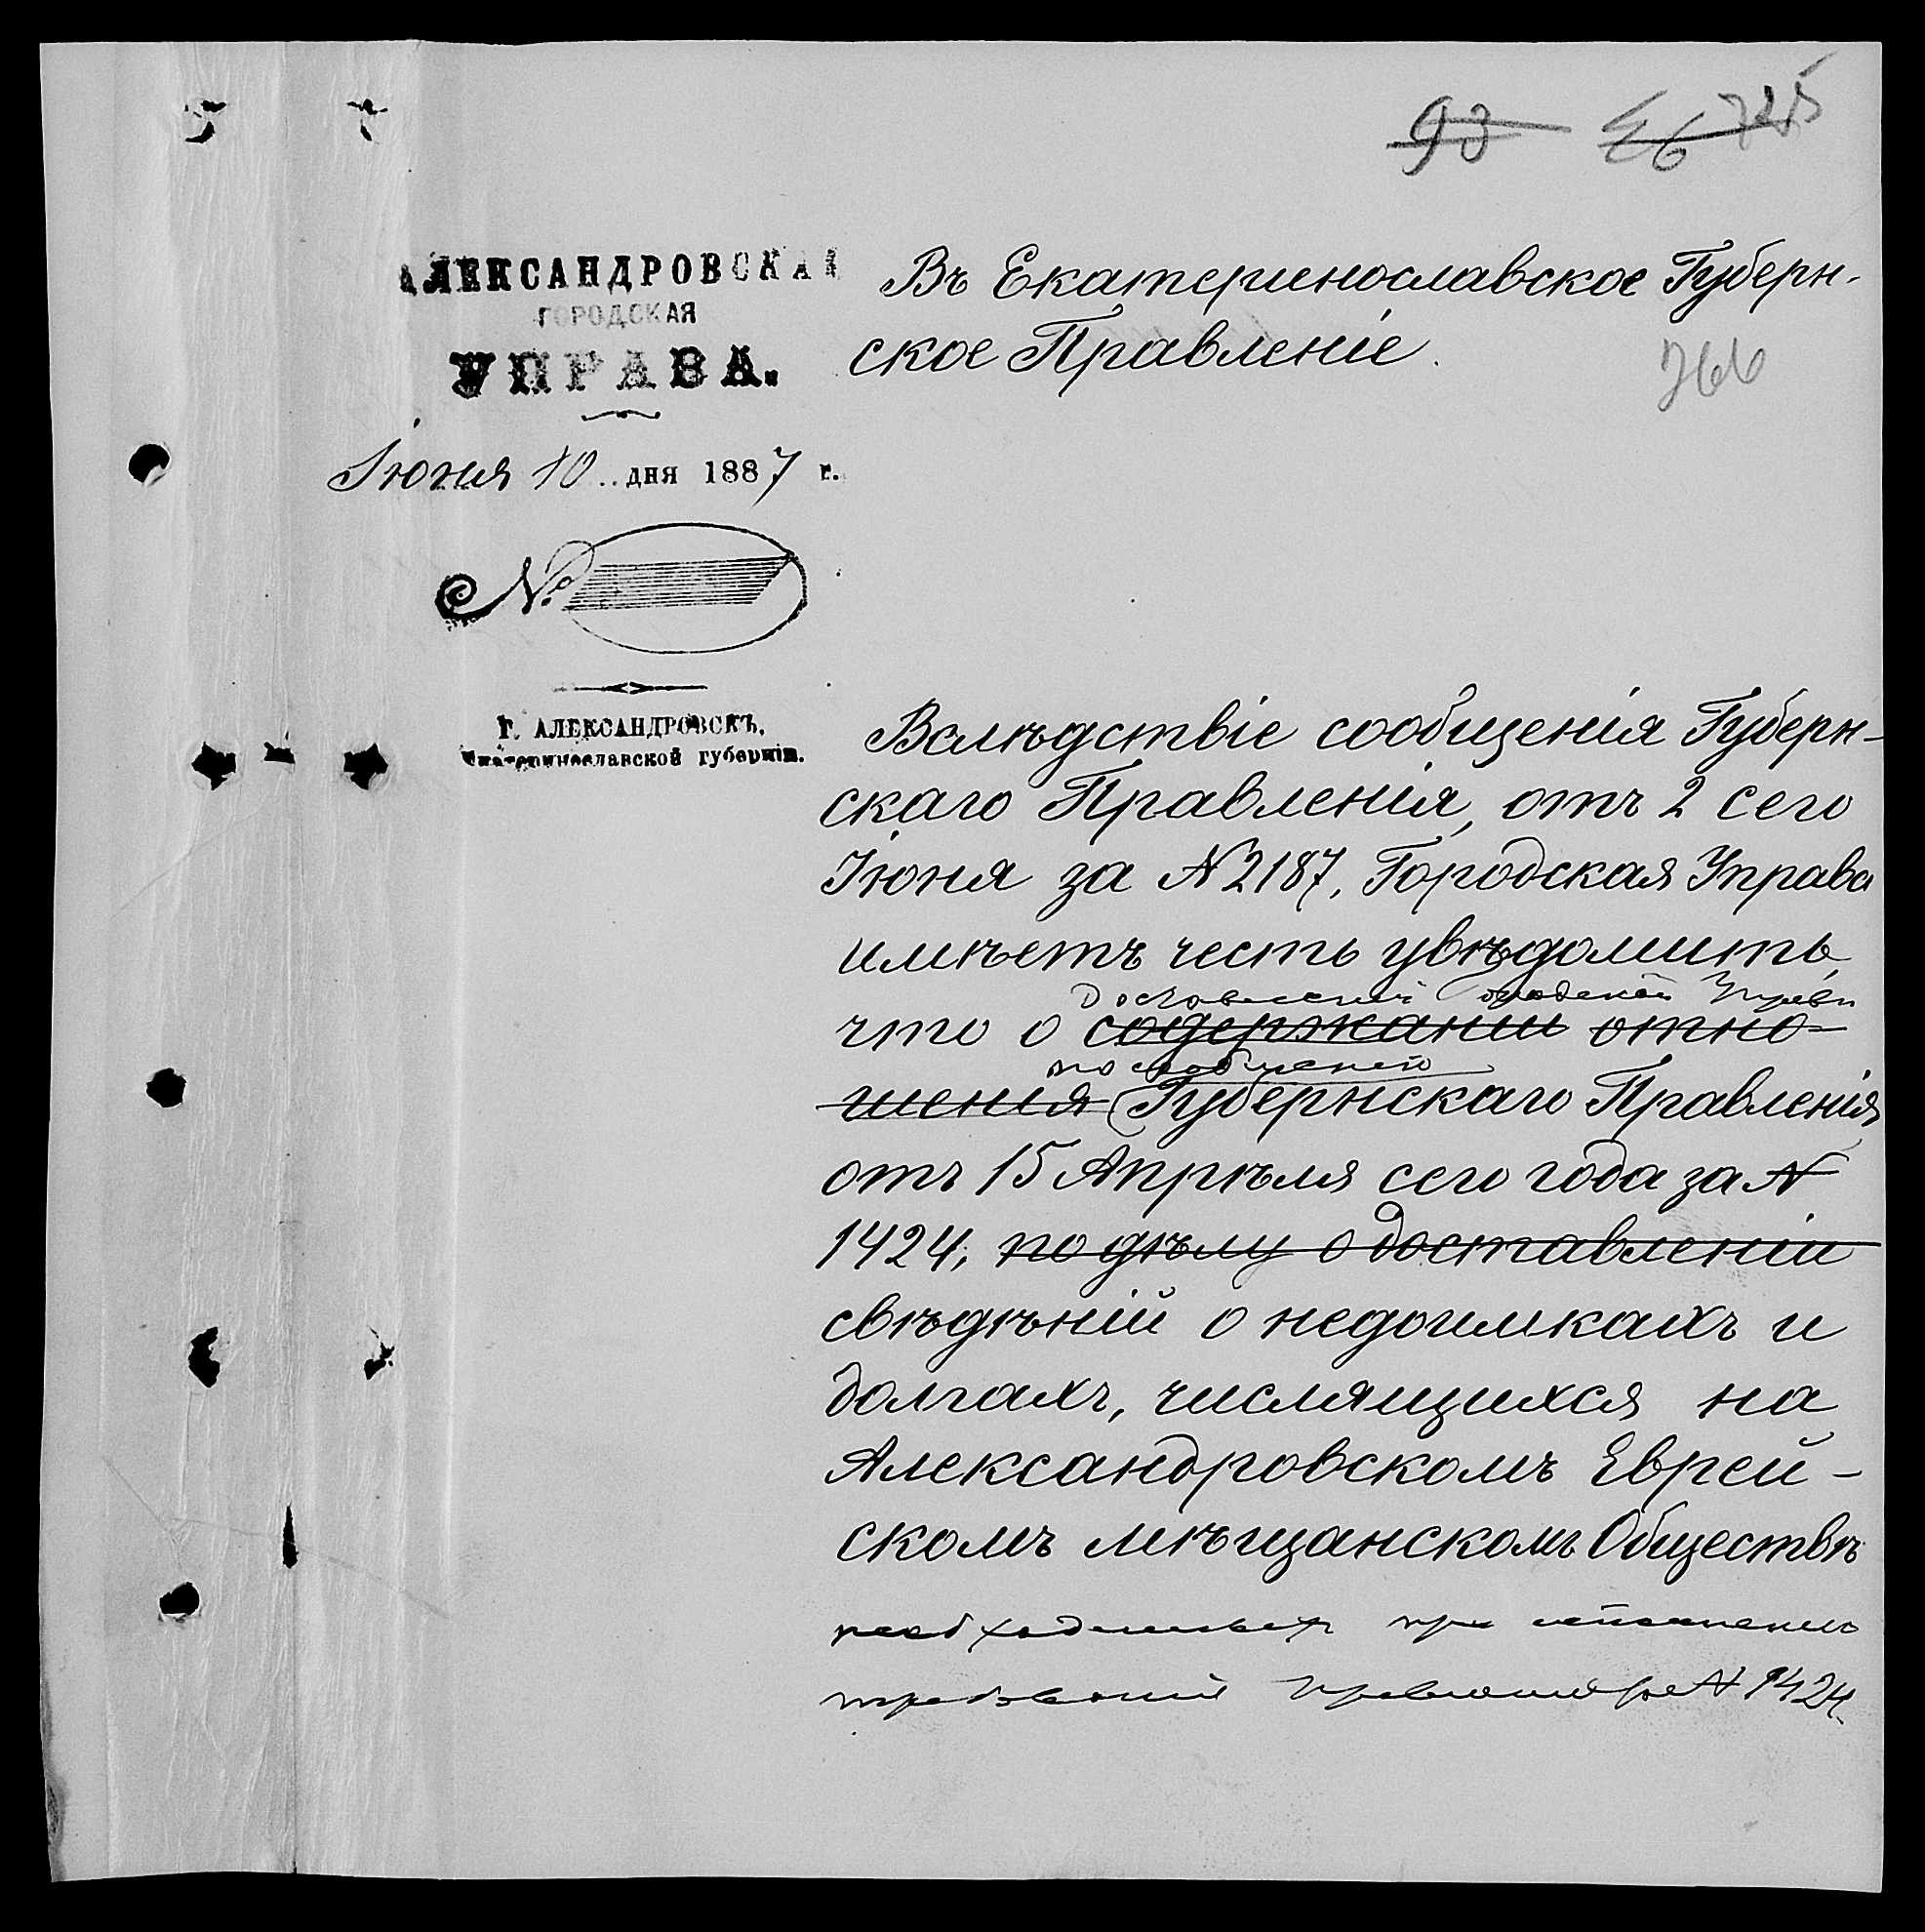 93 26 725
АЛЕКСАНДРОВСКАЯ
ГОРОДСКАЯ
УПРАВА.
Іюня 10 дня 1887 г.
№
Г. АЛЕКСАНДРОВСКЪ,
Екатеринославской губерніи.
Въ Екатеринославское Губерн-
ское Правленіе.
766
Вслѣдствіе сообщенія Губерн-
скаго Правленія, отъ 2 сего
Іюня за № 2187, Городская Управа
имѣетъ честь увѣдомить,
Городской Управы
что о содержаніи отно-
по сообщенію
шенія Губернскаго Правленія
отъ 15 Апрѣля сего года за №
1424, по дѣлу о доставленіи
свѣдѣній о недоимкахъ и
долгахъ, числящихся на
Александровскомъ Еврей-
скомъ мѣщанскомъ Обществѣ
при исполненіи
№ 1424.